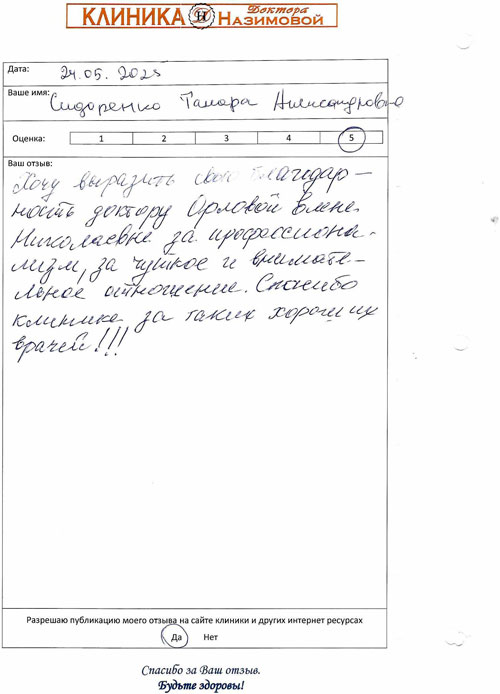 КЛИНИКА Доктора Назимовой
Дата: 24.05.2025
Ваше имя: Сидоренко Тамара Александровна
Оценка: 1 2 3 4 5
Ваш отзыв:
Хочу выразить свою благодар-
ность доктору Орловой Елене
Николаевне за профессиона-
лизм, за чуткое и внимате-
льное отношение. Спасибо
клинике за таких хороших
врачей!!!
Разрешаю публикацию моего отзыва на сайте клиники и других интернет ресурсах
Да Нет
Спасибо за Ваш отзыв.
Будьте здоровы!